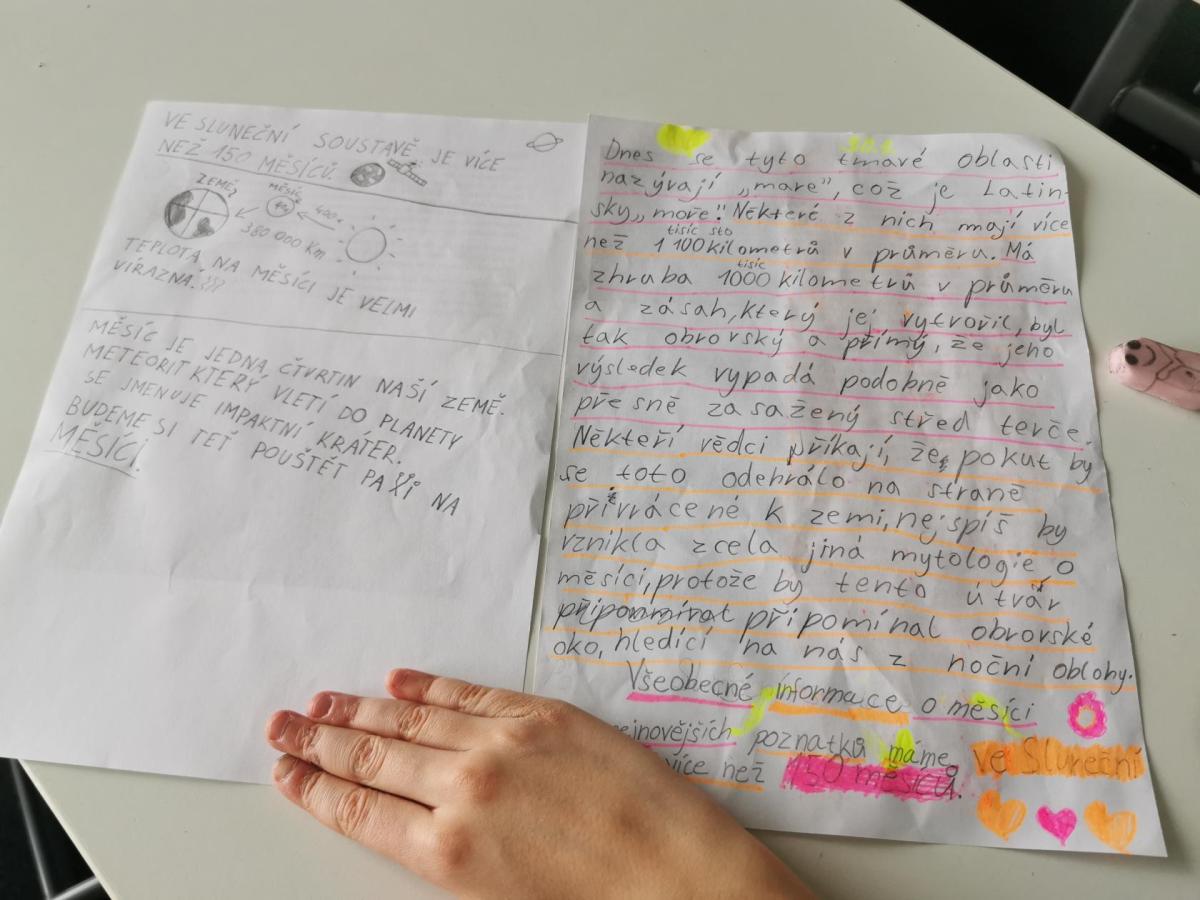 VE SLUNEČNÍ SOUSTAVĚ JE VÍCE
NEŽ 150 MĚSÍCŮ.
ZEMĚ
MĚSÍC
400x
380 000 Km
TEPLOTA NA MĚSÍCI JE VELMI
VÍRAZNÁ.
MĚSÍC JE JEDNA ČTVRTIN NAŠÍ ZEMĚ.
METEORIT KTERÝ VLETÍ DO PLANETY
SE JMENUJE IMPAKTNÍ KRÁTER.
BUDEME SI TEĎ POUŠTĚT NA
MĚSÍCI.
Dnes se tyto tmavé oblasti
nazývají „mare", což je Latin-
sky „moře". Některé z nich mají více
tisíc sto
než 1 100 kilometrů v průměru. Má
tisíc
zhruba 1000 kilometrů v průměru
a zásah, který jej vytvořil, byl
tak obrovský a přímý, že jeho
výsledek vypadá podobně jako
přesně zasažený střed terče.
Někteří vědci příkají, že pokut by
se toto odehrálo na straně
přivrácené k zemi, nejspíš by
vznikla zcela jiná mytologie o
měsíci, protože by tento útvar
připomínal obrovské
oko, hledící na nás z noční oblohy.
Všeobecné informace o měsíci
ejnovějších poznatků máme ve Sluneční
více než 150 měsíců.